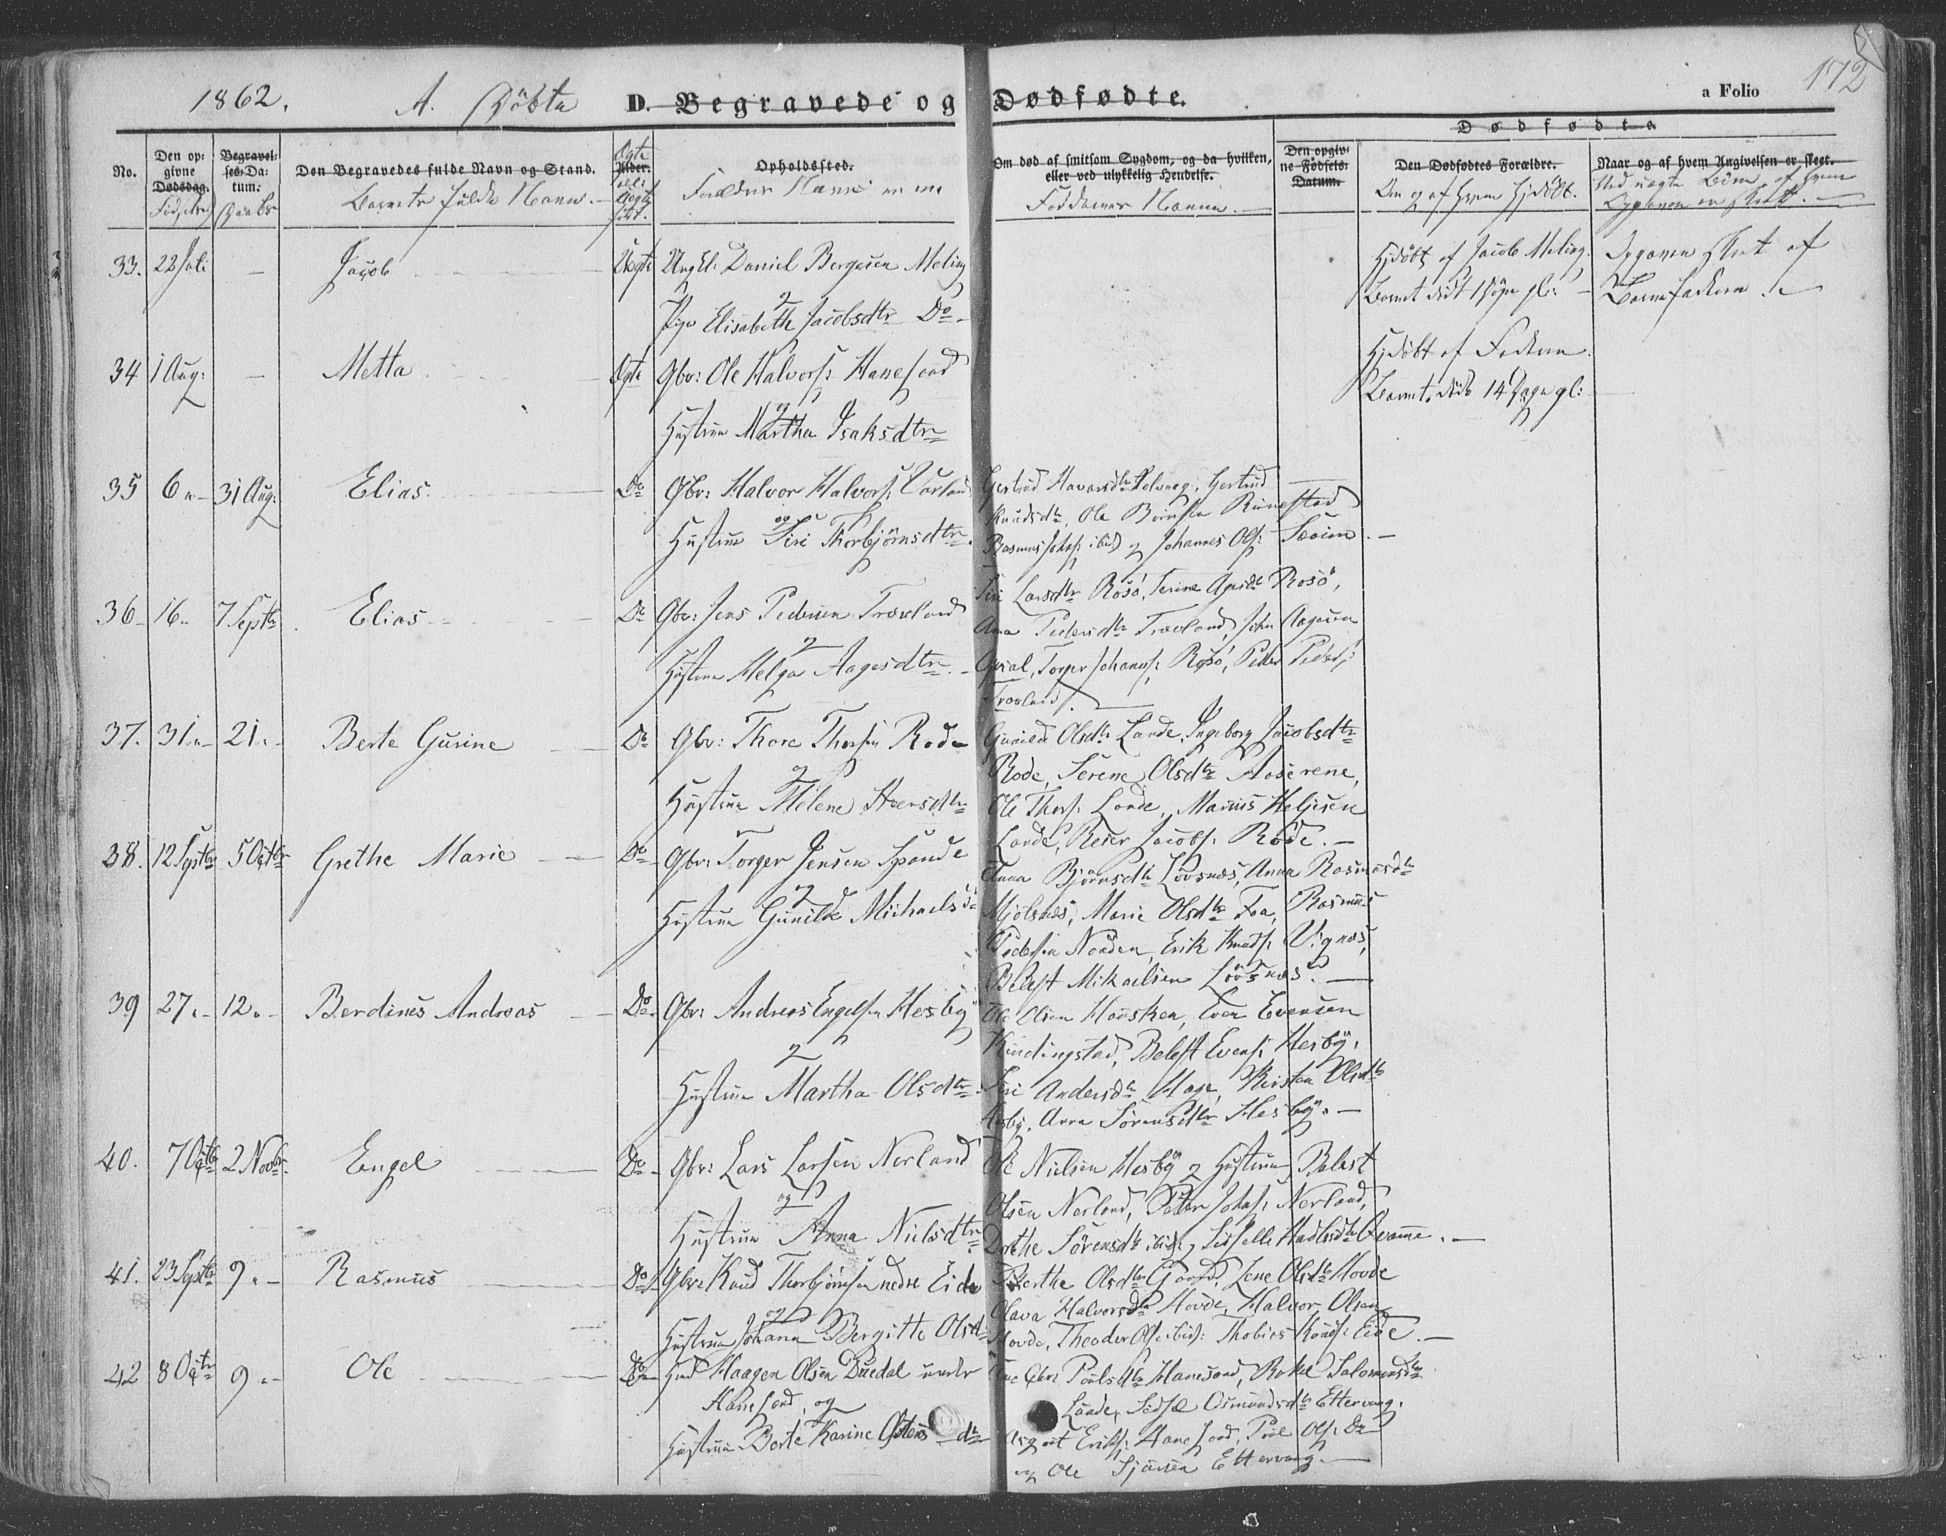 1862. A. Döbte D. Begravede og Dødfødte. a Folio 172
Dødfødte.
No.
Den opgivne Dødsdag.
Begravelses-Datum.
Den Begravedes fulde Navn og Stand.
Alder.
Opholdssted.
Om død af smitsom Sygdom, og da hvilken, eller ved ulykkelig Hendelse.
Den opgivne Fødsels-Datum.
Den Dødfødtes Forældre.
Naar og af hvem Angivelsen er skeet.
Barnets fulde Navn.
Faddernes Navne
Om og af hvem hjdöbt.
33. 22 Juli — Jacob Uægte Ungkl: Daniel Bergesen Meling
og
Pige Elisabeth Jacobsdtr Do
Hjdöbt af Jacob Meling.
Barnet död 1 Dögn gl:
Opgaven skeet af
Barnefaderen
34 1 Aug: — Metta Ægte Gbr: Ole Halvors: Hanesand
og
Hustrue Martha Isaksdtr
Hjdöbt af Faderen.
Barnet död 14 Dage gl:
35 6 31 Aug: Elias Do Gbr: Halvor Halvors:
og
Hustrue Siri Thorbjörnsdtr.
Gertrud
Knudsdtr, Ole Rennestad
Rasmus Johs: ibid og Johannes Ols:
36 16 7 Septbr. Elias Do Gbr: Jens Pedersen Træeland
og
Hustrue Helga Aagesdtr
Siri Larsdtr Rosö, Serine Rosö,
Ana Pedersdtr Træeland, John Aagesen
Torger Johans: Rosö, Peder Peders:
Træeland.
37. 31 21 Berte Gurine Do Gbr: Thore Thorsen Rode
og
Hustrue Helene
Gunild Olsdtr Lande, Ingeborg Jacobsdtr
Rode, Serene Olsdtr Aaserene,
Ole Thors: Lande, Marius Heljesen
Lande, Reier Jacobs: Rode.
38. 12 Septbr 5 Octbr Grethe Marie Do Gbr: Torger Jensen Spande
og
Hustrue Gunilde Michaelsd
Anna Björnsdtr Lövsnæs, Anna Rasmusdtr
Mjölsnæs, Marie Olsdtr Foa, Rasmus
Pedersen Norden, Erik Knuds: Vignæs,
Belest Mikaelsen Lövsnæs.
39 27 12 Berdines Andreas Do Gbr: Andreas Engelsen Hesby
og
Hustrue Martha Olsdtr
Ole Olsen Housken, Even Evensen
Kindingstad, Belest Evens: Hesby,
Siri Andersdtr Hage, Kirsten Olsdtr
Hesby, Anna Sörensdtr Hesby.
40. 7 Octbr 2 Novbr. Engel Do Gbr: Lars Larsen Nerland
og
Hustrue Anna Nielsdtr
Ole Nielsen Hesby og Hustrue, Belest
Olsen Nerland, Peder Johs: Nerland,
Dorthe Sörensdtr ibid, Sidselle Hadlesdtr Qvame.
41. 23 Septbr 9 Rasmus Do Gbr: Knud Thorbjörnsen nedre Eide
og
Hustrue Johana Bergitte Olsdtr
Berthe Olsdtr Gaard, Lene Olsdtr Hovde
Olava Halvorsdtr Hovde, Halvor Olsen
Hovde, Theodor Ols: ibid: Thobias Knuds: Eide.
42 8 Octr 9 Ole Do Hmd Haagen Olsen Duedal under
Hanesand, og
Hustrue Berte Karine
Poulsdtr Hanesand, Rakel Salomonsdtr
Lande, Sidsel Osmundsdtr Ettervaag,
Asgaut Eriks: Hanesand, Poul Ols: Do
og Ole Sjursen Ettervaag.